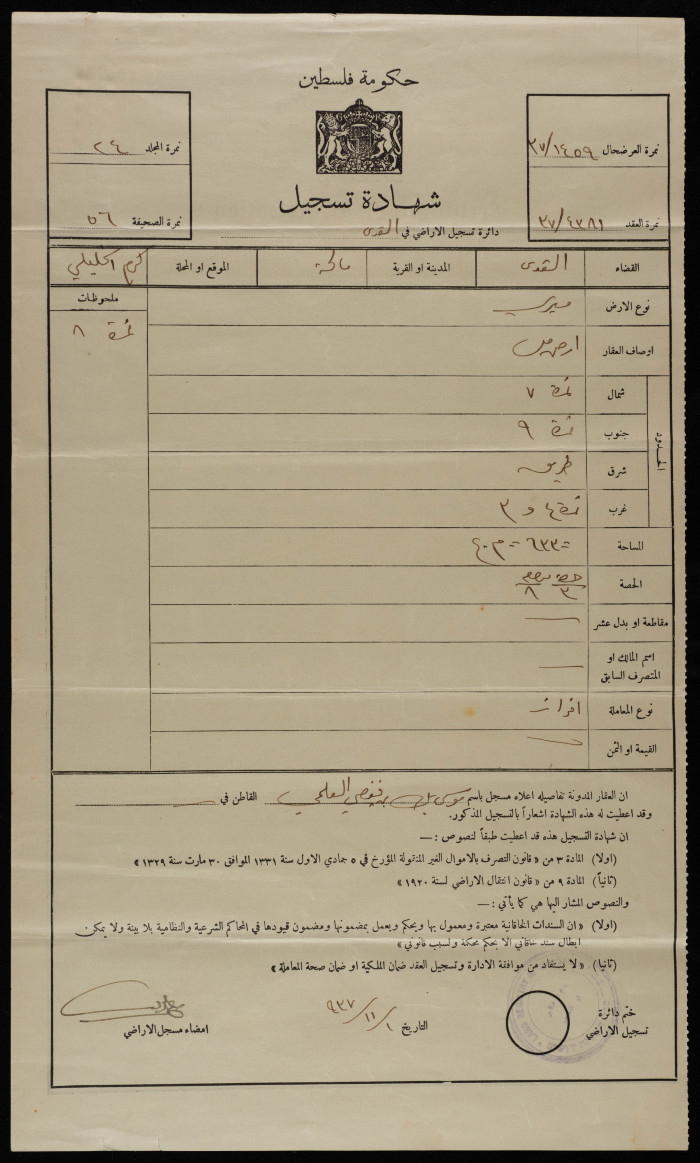 حكومة فلسطين
نمرة العرضحال ٣٧/١٤٥٩
نمرة المجلد ٢٤
شهادة تسجيل
نمرة العقد ٣٧/٤٣٨١
دائرة تسجيل الاراضي في القدس
نمرة الصحيفة ٥٦
القضاء القدس المدينة او القرية مالحة الموقع او المحلة كرم الخليلي
ملحوظات
نمرة ٨
نوع الارض ميري
اوصاف العقار ارض
الحدود
شمال نمرة ٧
جنوب نمرة ٩
شرق طريق
غرب نمرة ٤ و ٣
المساحة ٦٣٣
الحصة ٣ ٨
مقاطعة او بدل عشر —
اسم المالك او
المتصرف السابق —
نوع المعاملة افراز
القيمة او الثمن —
ان العقار المدونة تفاصيله اعلاه مسجل باسم موسى بك فيضي العلمي القاطن في —
وقد اعطيت له هذه الشهادة اشعاراً بالتسجيل المذكور.
ان شهادة التسجيل هذه قد اعطيت طبقاً لنصوص :—
(اولا) المادة ٣ من « قانون التصرف بالاموال الغير المنقولة المؤرخ في ٥ جمادي الاول سنة ١٣٣١ الموافق ٣٠ مارت سنة ١٣٢٩ »
(ثانياً) المادة ٩ من « قانون انتقال الاراضي لسنة ١٩٢٠ »
والنصوص المشار اليها هي كما يأتي :—
(اولا) « ان السندات الخاقانية معتبرة ومعمول بها ويحكم ويعمل بمضمونها ومضمون قيودها في المحاكم الشرعية والنظامية بلا بينة ولا يمكن
ابطال سند خاقاني الا بحكم محكمة ولسبب قانوني »
(ثانيا) « لا يستفاد من موافقة الادارة وتسجيل العقد ضمان الملكية او ضمان صحة المعاملة »
ختم دائرة
تسجيل الاراضي
التاريخ ١/١١/٩٣٧
امضاء مسجل الاراضي